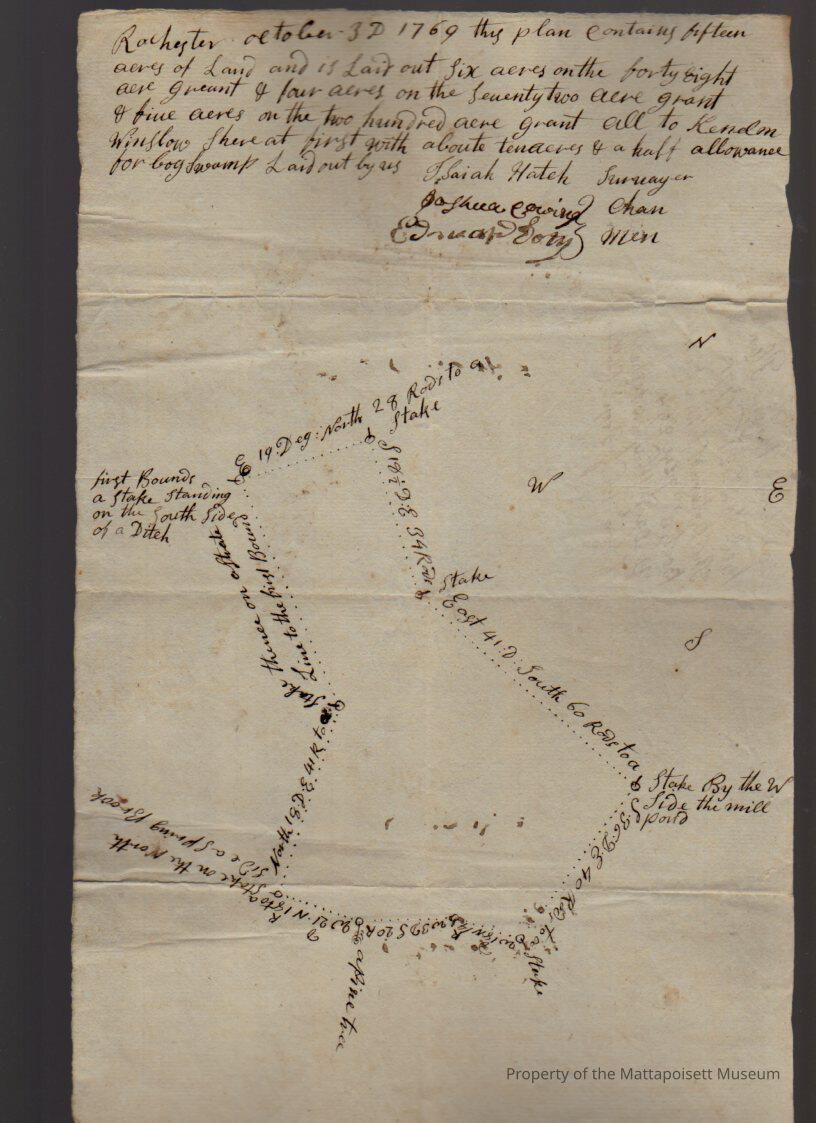 Rochester october 3D 1769 this plan contains fifteen
acres of Land and is Laid out Six acres on the forty eight
acre greant & four acres on the Seventy two acre grant
& five acres on the two hundred acre grant all to
Winslow there at first with aboute ten acres & a half allowance
for bog Swamp Laid out by us
Isaiah Hatch Survayer
Joshua Chan
Edward Men
N
19 Deg: North 28 Rods to a
Stake
first Bounds
a Stake Standing
on the South Side
of a Ditch
W
E
34 Rods
Stake
Stake thence on a Strait
Line to the first Bound
East 41 D South 60 Rods to a
S
Stake By the W
Side the mill
pond
North
Stake on the North
Side a Spring Brook
40 Rods to a Stake
20 R
a pine tree
Property of the Mattapoisett Museum